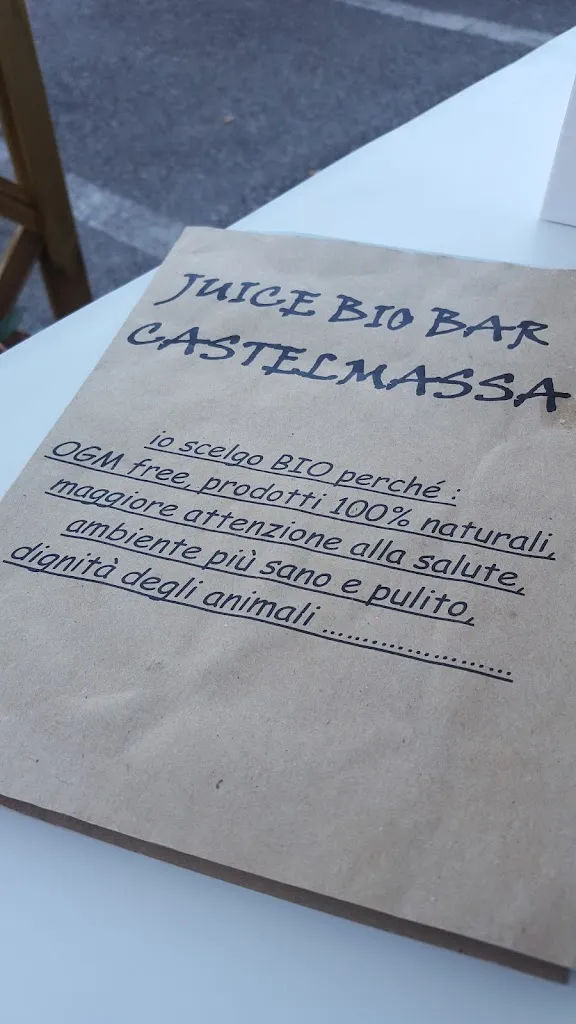 JUICE BIO BAR
CASTELMASSA
io scelgo BIO perché :
OGM free, prodotti 100% naturali,
maggiore attenzione alla salute,
ambiente più sano e pulito,
dignità degli animali ..........................